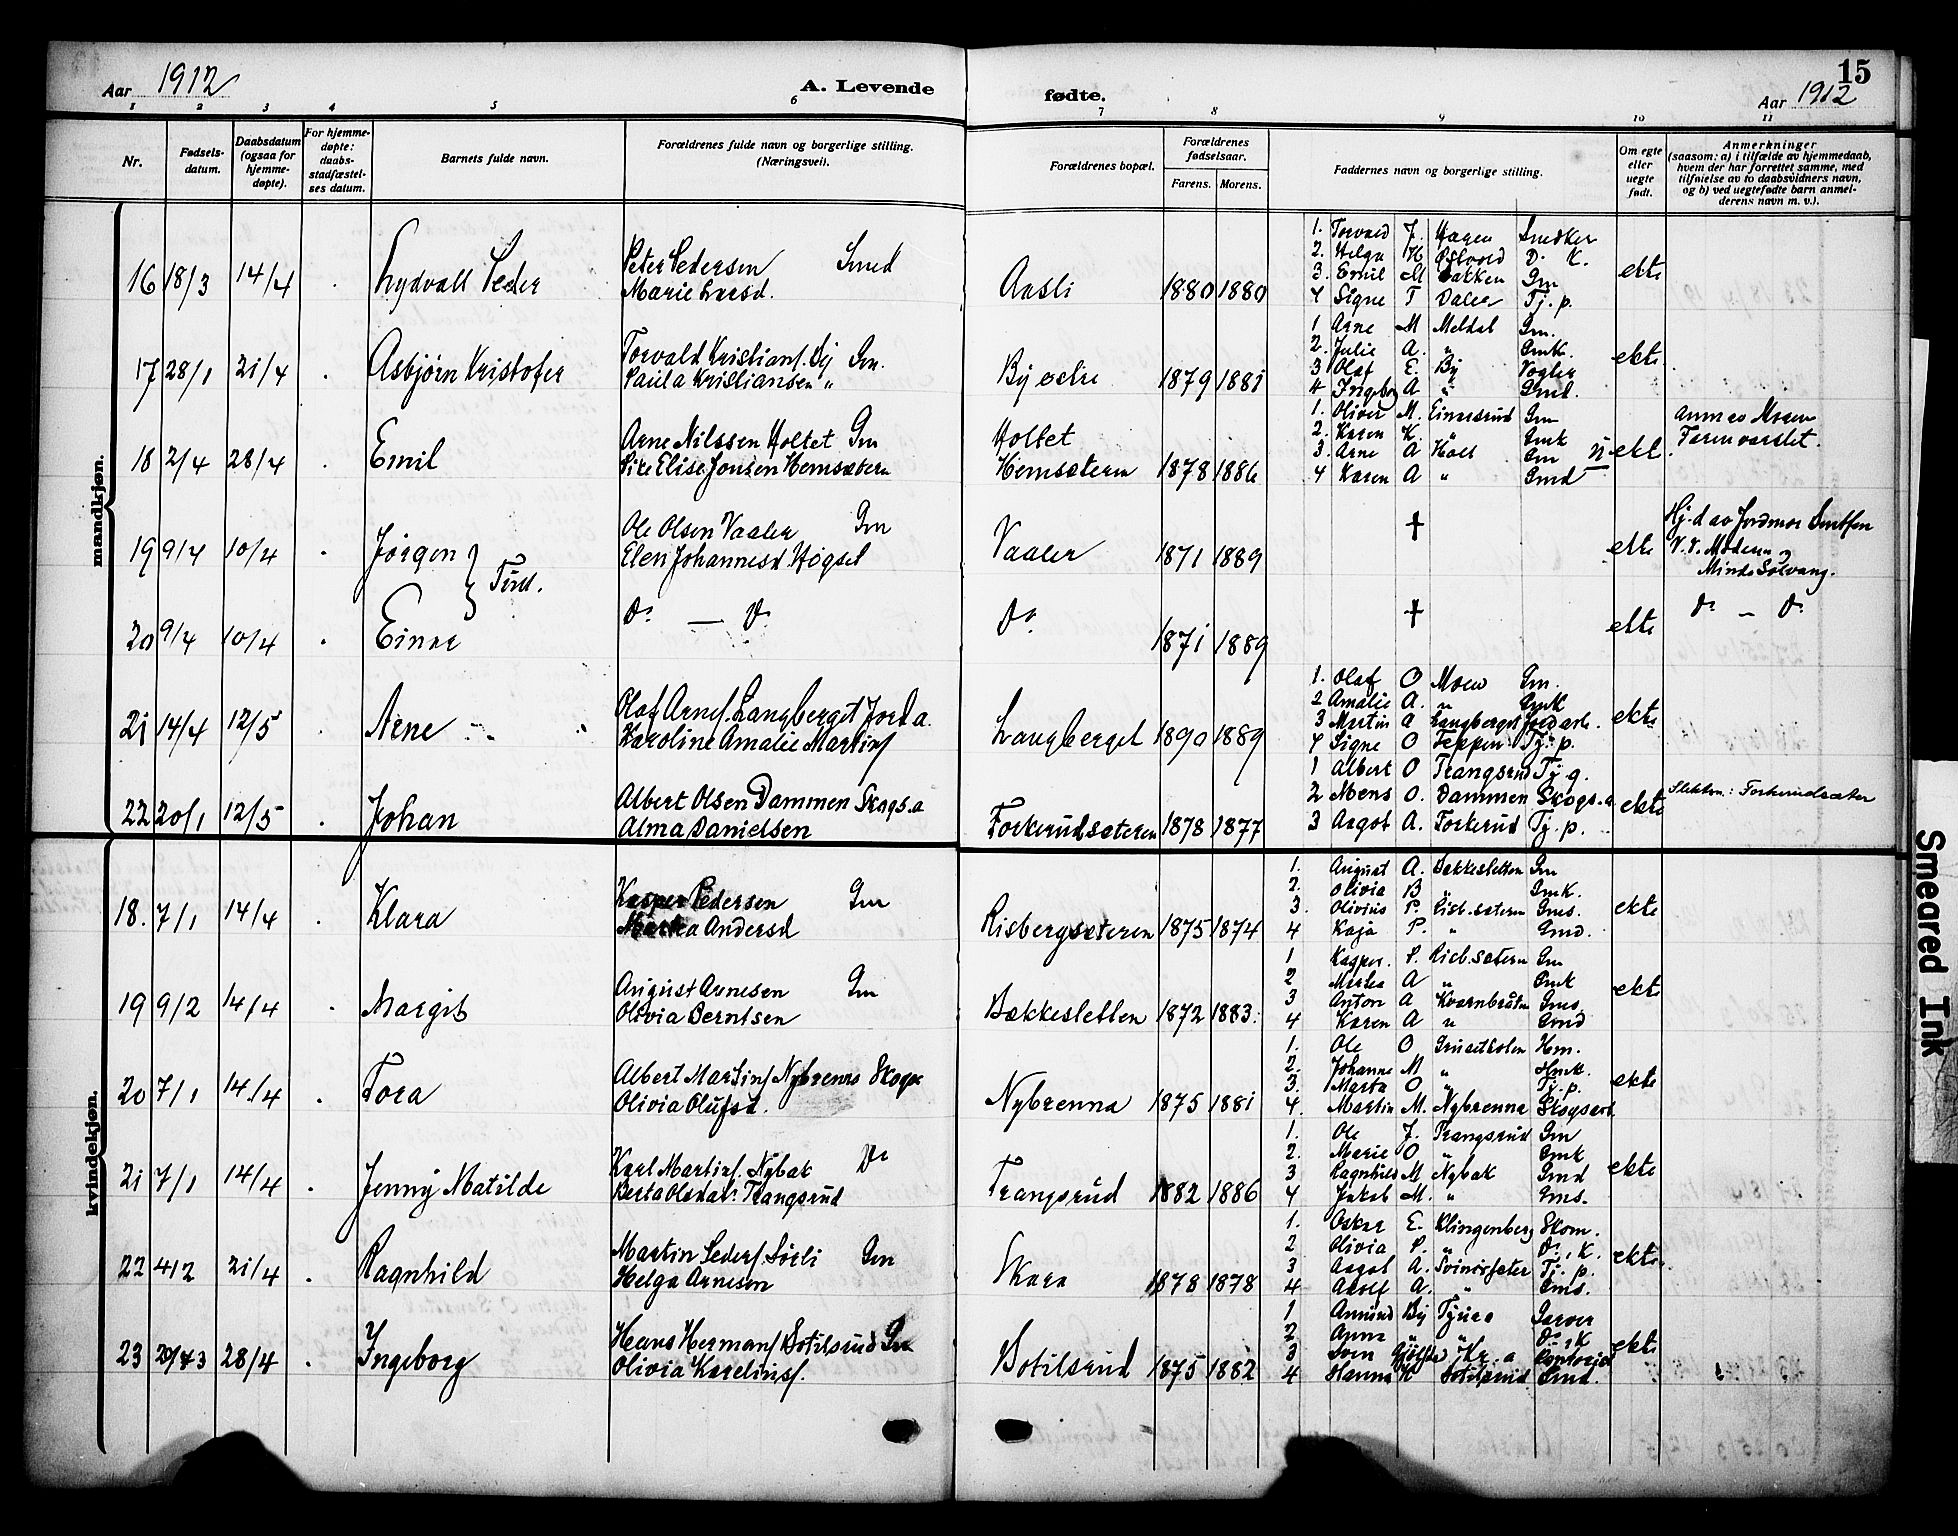 Aar 1912
A. Levende
fødte.
15
Aar 1912
1 2 3 4 5 6 7 8 9 10 11
Nr.
Fødsels-
datum.
Daabsdatum
(ogsaa for
hjemme-
døpte).
For hjemme-
døpte:
daabs-
stadfæstel-
ses datum.
Barnets fulde navn.
Forældrenes fulde navn og borgerlige stilling.
(Næringsvei).
Forældrenes bopæl.
Forældrenes
fødselsaar.
Farens. Morens.
Faddernes navn og borgerlige stilling.
Om egte
eller
uegte
født.
Anmerkninger
(saasom: a) i tilfælde av hjemmedaab,
hvem der har forrettet samme, med
tilføielse av to daabsvidners navn,
og b) ved uegtefødte barn anmel-
derens navn m. v.).
mandkjøn.
16 18/3 14/4 Lydvall Peder
Peter Pedersen Smed
Marie Larsd.
Aasli 1880 1880
1. Torvald J. Hagen Snedker
2. Helga K Østvold D. K.
3. Emil M Bakken Gm
4 Signe T Daler Tj. p.
ekte
17 28/1 21/4 Asbjørn Kristofer
Torvald Kristians. By Gm.
Paula Kristiansen "
By østre 1879 1881
1 Arne M Meldal Gm.
2. Julie A. " Gmk.
3 Olaf E. By Vogter
4 Ingeborg A " Gmd.
ekte
18 2/4 28/4 Emil
Arne Nilssen Holtet Gm
Elise Jonsen Hemsætern
Holtet
Hemsæteren 1878 1886
1. Oliver M. Einersrud Gm
2. Karen K. " Gmk
3. Arne A Holt Gm
4 Karen A " Gmd
ekt.
19 9/4 10/4 Jørgen
Tvil.
Ole Olsen Vaaler Gm
Elen Johannesd Høgset
Vaaler 1871 1889
†
ekte
Hj. d av Jordmor
V. V. Moderen og
Minda Solvang.
20 9/4 10/4 Einar
Do — Do
Do 1871 1889
†
ekte
Do — Do
21 14/4 12/5 Arne
Olaf Arnes. Langberget Jord a.
Karoline Amalie Martins
Langberget 1890 1889
1. Olaf O Moen Gm.
2 Amalie A. " Gmk
3 Martin A Langberget Jordarb.
4 Signe O Teppen Tj. p.
ekte
22 20/1 12/5 Johan
Albert Olsen Dammen Skogs.a
Alma Danielsen
Forkerudsæteren 1878 1877
1 Albert O Trangsrud Tj g.
2 Mons O. Dammen Skogs.a
3 Aagot A. Forkerud Tj. p.
ekte
: Forkerudsæter
kvindekjøn.
18. 7/1 14/4 Klara
Kasper Pedersen Gm
Martea Andersd
Risbergsæteren 1875 1874
1. August A. Bækkesletten Gm
2. Olivia B " Gmk.
3. Olivius P. Risb.sætern Gms.
4 Kaja P. " Gmd.
ekte
19 9/2 14/4 Margit
August Arnesen Gm
Olivia Berntsen
Bækkesletten 1872 1883.
1 Kasper. P. Risb.sætern Gm
2 Martea A " Gmk
3 Anton A Kvernbråten Gms
4 Karen A " Gmd
ekte
20 7/1 14/4 Tora
Albert Martins Nybrenna Skogs
Olivia Olufsd.
Nybrenna 1875 1881
1. Ole O Hm.
2. Johanne M " Hmk.
3. Marta O " Tj. p.
4. Martin M. Nybrenna Skogsarb.
ekte
21 7/1 14/4 Jenny Matilde
Karl Martins. Nybak Do
Berta Olsdat. Trangsrud
Trangsrud 1882 1886
1. Ole J. Trangsrud Gm
2. Marie O " Gmk
3 Ragnhild M Nybak Gmd
4 Jakob M. " Gms.
ekte
22 4/2 21/4 Ragnhild
Martin Peders. Sørli Gm
Helga Arnesen
Skara 1878 1878
1. Oskar E. Klingenberg Skom.
2 Olivia P. " Do. K.
3 Aagot A. Tj. p.
4 Adolf A. " Gms.
ekte
23 28/4 Ingeborg
Hans Hermans Botilsrud Gm
Olivia Karelius.
Botilsrud 1875 1882
1 Amund By Tjura Garver
2 Anna " " Do. K
3 Sven Kr.a
4 Hanna H Botilsrud Gmd.
ekte
Smeared Ink